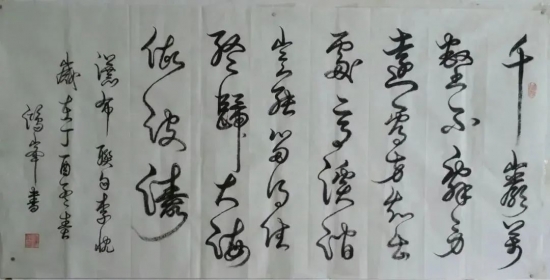 千巖萬
壑不辭勞
遠看方知出
處高溪澗
豈能留得住
終歸大海
作波濤
瀑布聯句李忱
歲在丁酉春
峰書